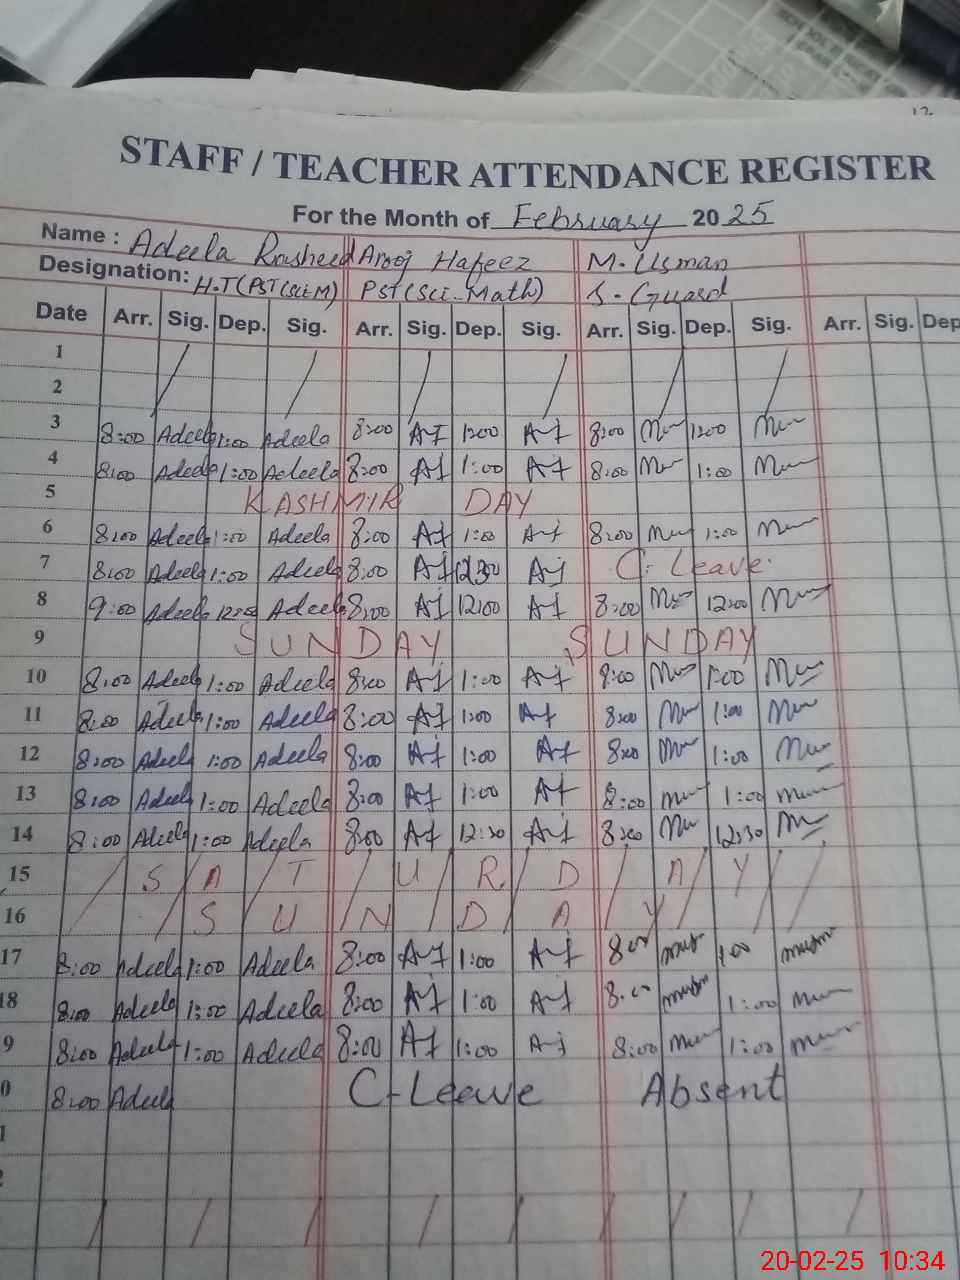 12
STAFF / TEACHER ATTENDANCE REGISTER
For the Month of February 2025
Name : Adeela Rasheed Arooj Hafeez M. Usman
Designation: H.T(PST(SCI.M) PST(Sci-Math) S. Guard
Date Arr. Sig. Dep. Sig. Arr. Sig. Dep. Sig. Arr. Sig. Dep. Sig. Arr. Sig. Dep
1
2
3 8:00 Adeela 1:00 Adeela 8:00 AJ 1:00 AJ 8:00 1:00
4 8:00 Adeela 1:00 Adeela 8:00 AJ 1:00 AJ 8:00 1:00
5 KASHMIR DAY
6 8:00 Adeela 1:00 Adeela 8:00 AJ 1:00 AJ 8:00 1:00
7 8:00 Adeela 1:00 Adeela 8:00 AJ 12:30 AJ C. Leave.
8 9:00 Adeela 12:00 Adeela 8:00 AJ 12:00 AJ 8:00 12:00
9 SUNDAY SUNDAY
10 8:00 Adeela 1:00 Adeela 8:00 AJ 1:00 AJ 8:00 1:00
11 8:00 Adeela 1:00 Adeela 8:00 AJ 1:00 AJ 8:00 1:00
12 8:00 Adeela 1:00 Adeela 8:00 AJ 1:00 AJ 8:00 1:00
13 8:00 Adeela 1:00 Adeela 8:00 AJ 1:00 AJ 8:00 1:00
14 8:00 Adeela 1:00 Adeela 8:00 AJ 12:30 AJ 8:00 12:30
15 SATURDAY
16 SUNDAY
17 8:00 Adeela 1:00 Adeela 8:00 AJ 1:00 AJ 8:00 1:00
18 8:00 Adeela 1:00 Adeela 8:00 AJ 1:00 AJ 8:00 1:00
9 8:00 Adeela 1:00 Adeela 8:00 AJ 1:00 AJ 8:00 1:00
0 8:00 Adeela C-Leave Absent
1
2
20-02-25 10:34